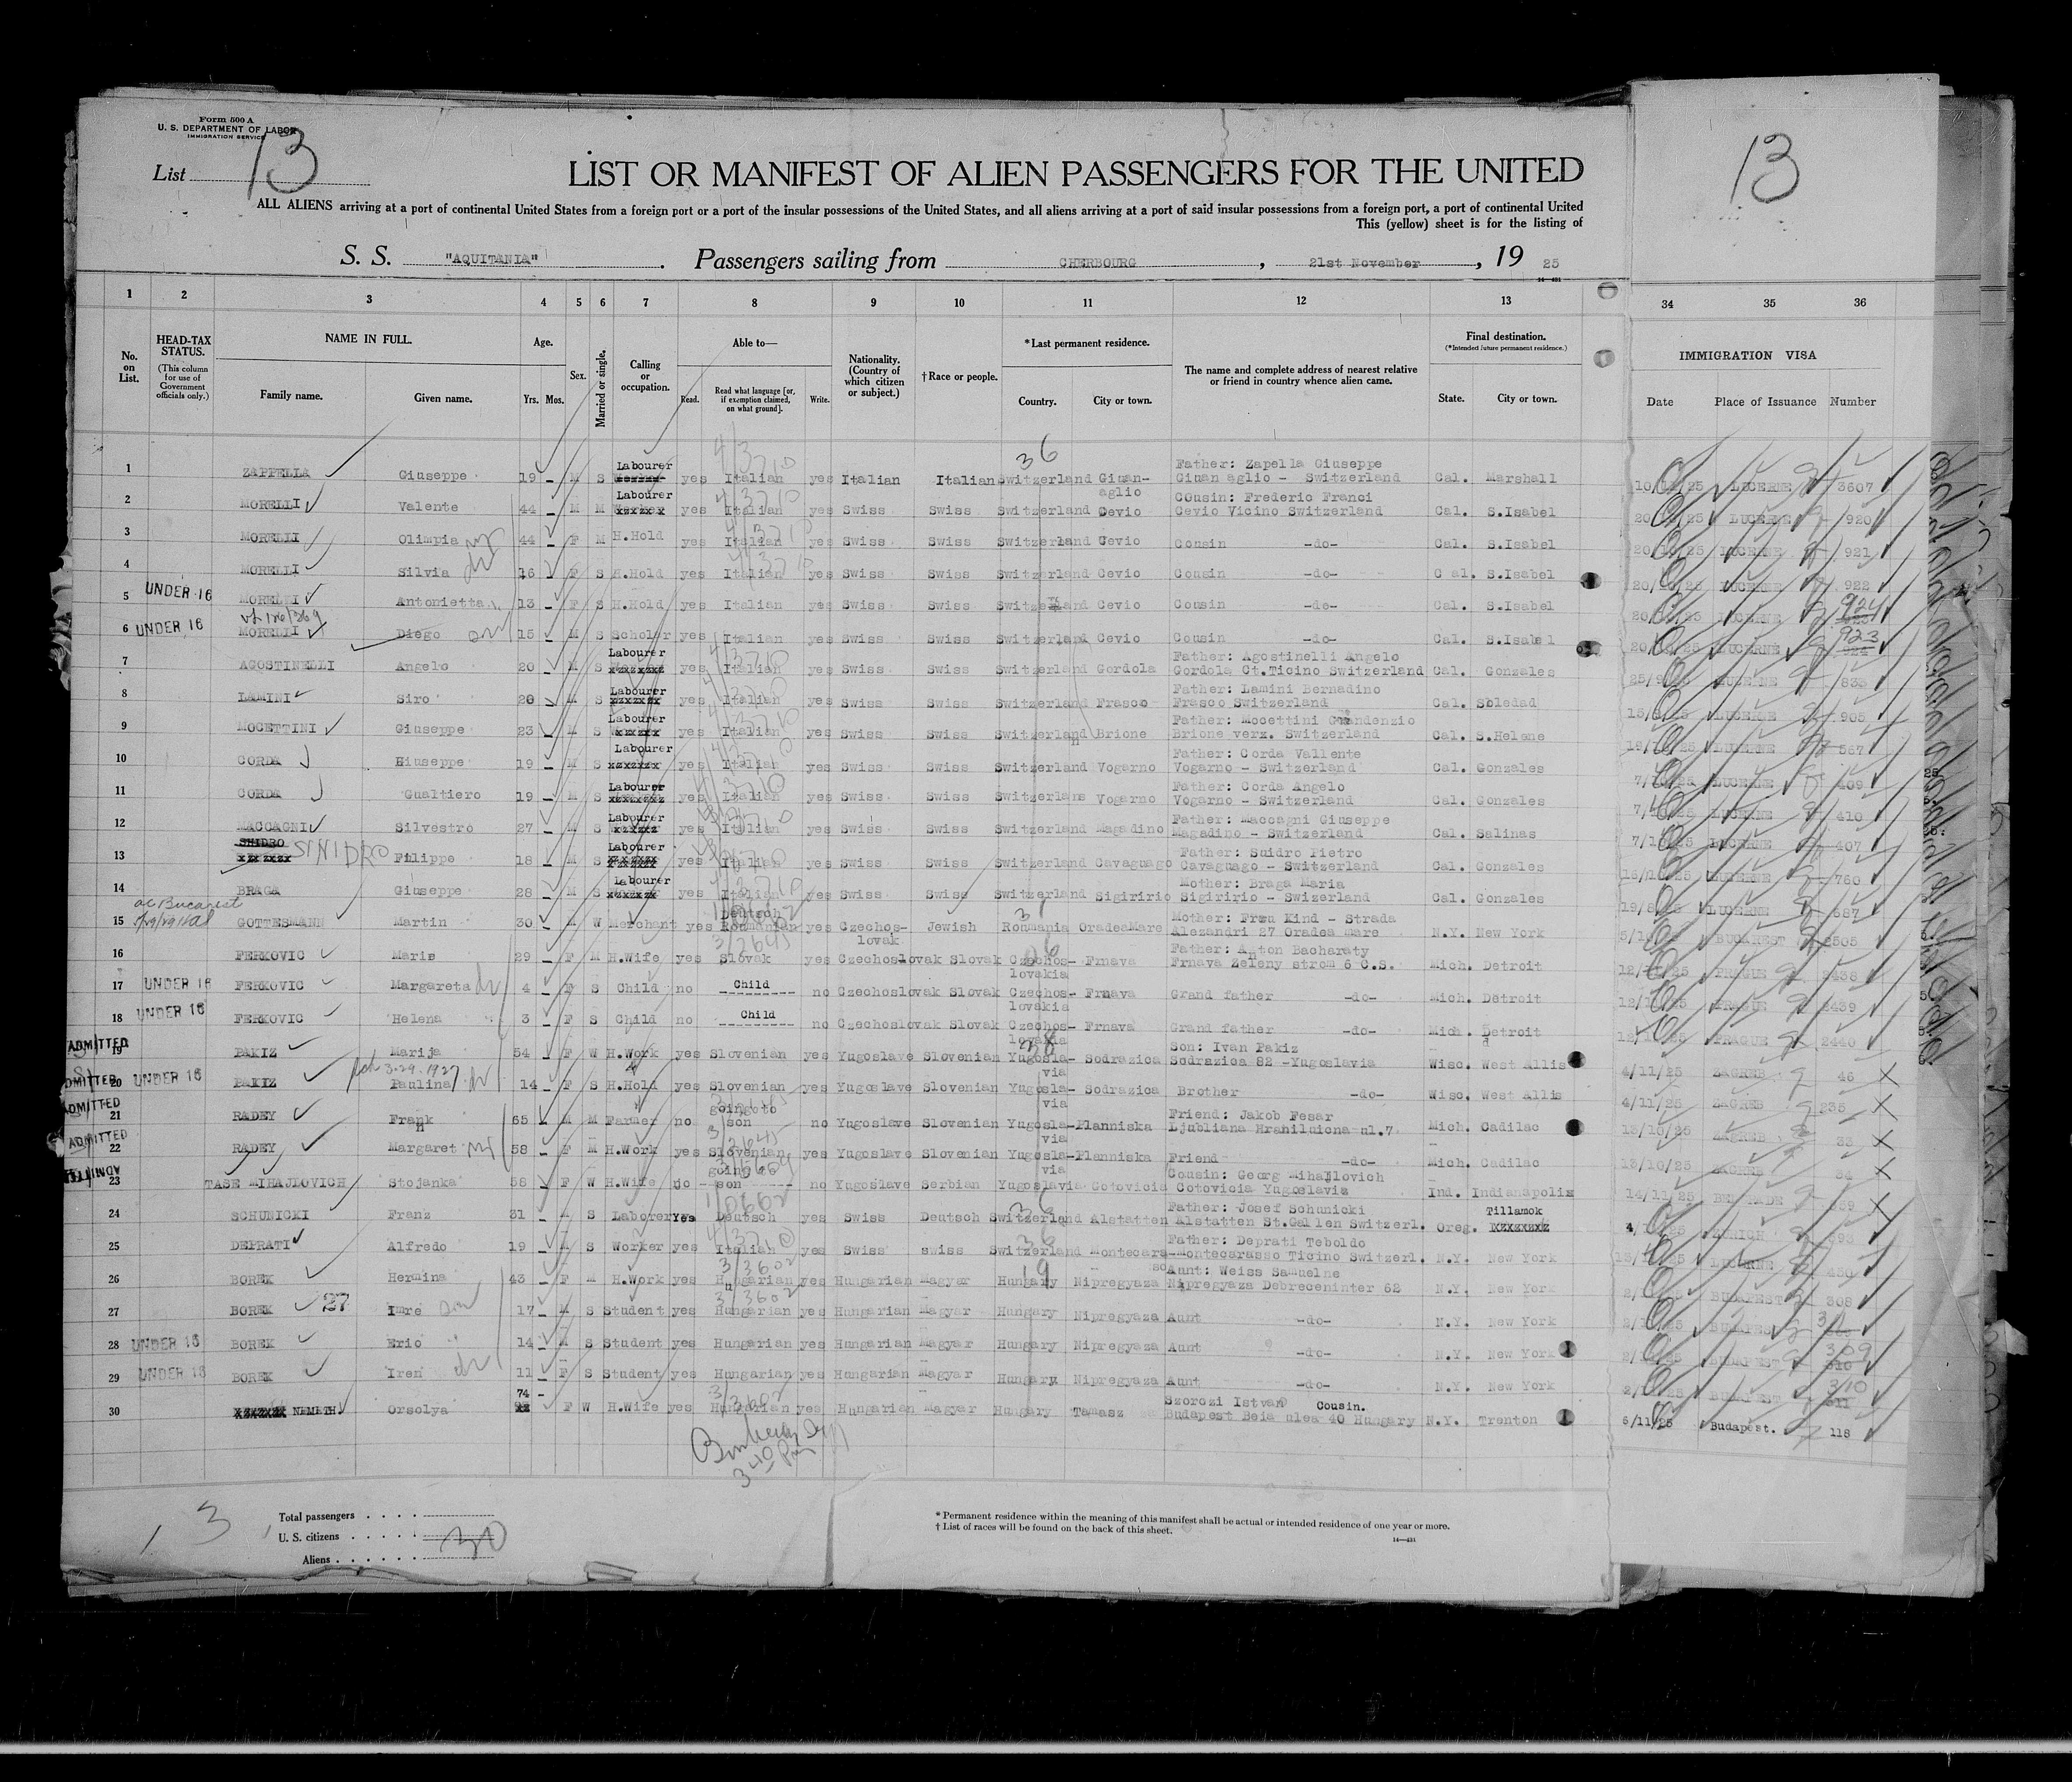 Form 500 A
U. S. DEPARTMENT OF LABOR
IMMIGRATION SERVICE
List 13
LIST OR MANIFEST OF ALIEN PASSENGERS FOR THE UNITED
ALL ALIENS arriving at a port of continental United States from a foreign port or a port of the insular possessions of the United States, and all aliens arriving at a port of said insular possessions from a foreign port, a port of continental United
This (yellow) sheet is for the listing of
S. S. "AQUITANIA". Passengers sailing from CHERBOURG, 21st November, 19 25
13
1 2 3 4 5 6 7 8 9 10 11 12 13 34 35 36
No. on List. HEAD-TAX STATUS. (This column for use of Government officials only.) NAME IN FULL. Family name. Given name. Age. Yrs. Mos. Sex. Married or single. Calling or occupation. Able to— Read. Read what language [or, if exemption claimed, on what ground]. Write. Nationality. (Country of which citizen or subject.) †Race or people. *Last permanent residence. Country. City or town. The name and complete address of nearest relative or friend in country whence alien came. Final destination. (*Intended future permanent residence.) State. City or town. IMMIGRATION VISA Date Place of Issuance Number
1 ZAPPELLA Giuseppe 19 - M S Labourer yes Italian yes Italian Italian Switzerland Giuan-aglio Father: Zapella Giuseppe Giuan aglio - Switzerland Cal. Marshall LUCERNE 3607
2 MORELLI Valente 44 - M M Labourer yes Italian yes Swiss Swiss Switzerland Cevio Cousin: Frederic Franci Cevio Vicino Switzerland Cal. S.Isabel LUCERNE 920
3 MORELLI Olimpia 44 - F M H.Hold yes Italian yes Swiss Swiss Switzerland Cevio Cousin -do- Cal. S.Isabel LUCERNE 921
4 MORELLI Silvia 16 - F S H.Hold yes Italian yes Swiss Swiss Switzerland Cevio Cousin -do- Cal. S.Isabel LUCERNE 922
5 UNDER 16 MORELLI Antonietta 13 - F S H.Hold yes Italian yes Swiss Swiss Switzerland Cevio Cousin -do- Cal. S.Isabel LUCERNE 924
6 UNDER 16 MORELLI Diego 15 - M S Scholar yes Italian yes Swiss Swiss Switzerland Cevio Cousin -do- Cal. S.Isabel LUCERNE 923
7 AGOSTINELLI Angelo 20 - M S Labourer yes Italian yes Swiss Swiss Switzerland Gordola Father: Agostinelli Angelo Gordola Ct.Ticino Switzerland Cal. Gonzales LUCERNE 833
8 LAMINI Siro 20 - M S Labourer yes Italian yes Swiss Swiss Switzerland Frasco Father: Lamini Bernadino Frasco Switzerland Cal. Soledad LUCERNE 905
9 MOCETTINI Giuseppe 23 - M S Labourer yes Italian yes Swiss Swiss Switzerland Brione Father: Mocettini Gaudenzio Brione verz. Switzerland Cal. S.Helene LUCERNE 567
10 CORDA Giuseppe 19 - M S Labourer yes Italian yes Swiss Swiss Switzerland Vogarno Father: Corda Vallente Vogarno - Switzerland Cal. Gonzales LUCERNE 409
11 CORDA Gualtiero 19 - M S Labourer yes Italian yes Swiss Swiss Switzerland Vogarno Father: Corda Angelo Vogarno - Switzerland Cal. Gonzales LUCERNE 410
12 MACCAGNI Silvestro 27 - M S Labourer yes Italian yes Swiss Swiss Switzerland Magadino Father: Maccagni Giuseppe Magadino - Switzerland Cal. Salinas LUCERNE 407
13 SINIDRO Filippo 18 - M S Labourer yes Italian yes Swiss Swiss Switzerland Cavaguago Father: Suidro Pietro Cavaguago - Switzerland Cal. Gonzales LUCERNE 760
14 BRAGA Giuseppe 28 - M S Labourer yes Italian yes Swiss Swiss Switzerland Sigiririo Mother: Braga Maria Sigiririo - Swizerland Cal. Gonzales LUCERNE 687
15 GOTTESMANN Martin 30 - M W Merchant yes Deutsch Roumanian yes Czechos-lovak Jewish Roumania OradeaMare Mother: Frau Kind - Strada Alezandri 27 Oradea mare N.Y. New York BUCAREST 2505
16 FERKOVIC Marie 29 - F M H.Wife yes Slovak yes Czechoslovak Slovak Czechos-lovakia Frnava Father: Anton Bacharaty Frnava Zeleny strom 6 C.S. Mich. Detroit PRAGUE 2438
17 UNDER 16 FERKOVIC Margareta 4 - F S Child no Child no Czechoslovak Slovak Czechos-lovakia Frnava Grand father -do- Mich. Detroit PRAGUE 2439
18 UNDER 16 FERKOVIC Helena 3 - F S Child no Child no Czechoslovak Slovak Czechos-lovakia Frnava Grand father -do- Mich. Detroit PRAGUE 2440
19 ADMITTED PAKIZ Marija 54 - F W H.Work yes Slovenian yes Yugoslave Slovenian Yugosla-via Sodrazica Son: Ivan Pakiz Sodrazica 82 -Yugoslavia Wisc. West Allis 4/11/25 ZAGREB 46
20 ADMITTED UNDER 16 PAKIZ Paulina 3-29-1927 14 - F S H.Hold yes Slovenian yes Yugoslave Slovenian Yugosla-via Sodrazica Brother -do- Wisc. West Allis 4/11/25 ZAGREB 235
21 ADMITTED RADEY Frank 65 - M M Farmer no going to son no Yugoslave Slovenian Yugosla-via Planniska Friend: Jakob Fesar Ljubliana Hranilnicna ul.7. Mich. Cadilac 13/10/25 ZAGREB 33
22 ADMITTED RADEY Margaret 58 - F M H.Work yes Slovenian yes Yugoslave Slovenian Yugosla-via Planniska Friend -do- Mich. Cadilac 13/10/25 ZAGREB 34
23 ADMITTED TASE MIHAJLOVICH Stojanka 58 - F W H.Wife no going to son no Yugoslave Serbian Yugoslavia Cotovicia Cousin: Georg Mihajlovich Cotovicia Yugoslavia Ind. Indianapolis 14/11/25 BELGRADE
24 SCHUNICKI Franz 31 - M S Laborer Yes Deutsch yes Swiss Deutsch Switzerland Alstatten Father: Josef Schunicki Alstatten St.Gallen Switzerl. Oreg. Tillamok ZURICH
25 DEPRATI Alfredo 19 - M S Worker yes Italian yes Swiss swiss Switzerland Montecara-sso Father: Deprati Teboldo Montecarasso Ticino Switzerl. N.Y. New York LUCERNE 450
26 BOREK Hermina 43 - F M H.Work yes Hungarian yes Hungarian Magyar Hungary Nipregyaza Aunt: Weiss Samuelne Nipregyaza Debreceninter 62 N.Y. New York BUDAPEST 308
27 BOREK 27 Imre 17 - M S Student yes Hungarian yes Hungarian Magyar Hungary Nipregyaza Aunt -do- N.Y. New York BUDAPEST
28 UNDER 16 BOREK Eric 14 - M S Student yes Hungarian yes Hungarian Magyar Hungary Nipregyaza Aunt -do- N.Y. New York BUDAPEST 309
29 UNDER 16 BOREK Iren 11 - F S Student yes Hungarian yes Hungarian Magyar Hungary Nipregyaza Aunt -do- N.Y. New York BUDAPEST 310
30 NEMETH. Orsolya 74 - F W H.Wife yes Hungarian yes Hungarian Magyar Hungary Tamasz Szorozi Istvan Cousin. Budapest Beia ulea 40 Hungary N.Y. Trenton 6/11/25 Budapest. 118
13
Total passengers . . . .
U. S. citizens . . . . .
Aliens . . . . . . 30
* Permanent residence within the meaning of this manifest shall be actual or intended residence of one year or more.
† List of races will be found on the back of this sheet.
14—431